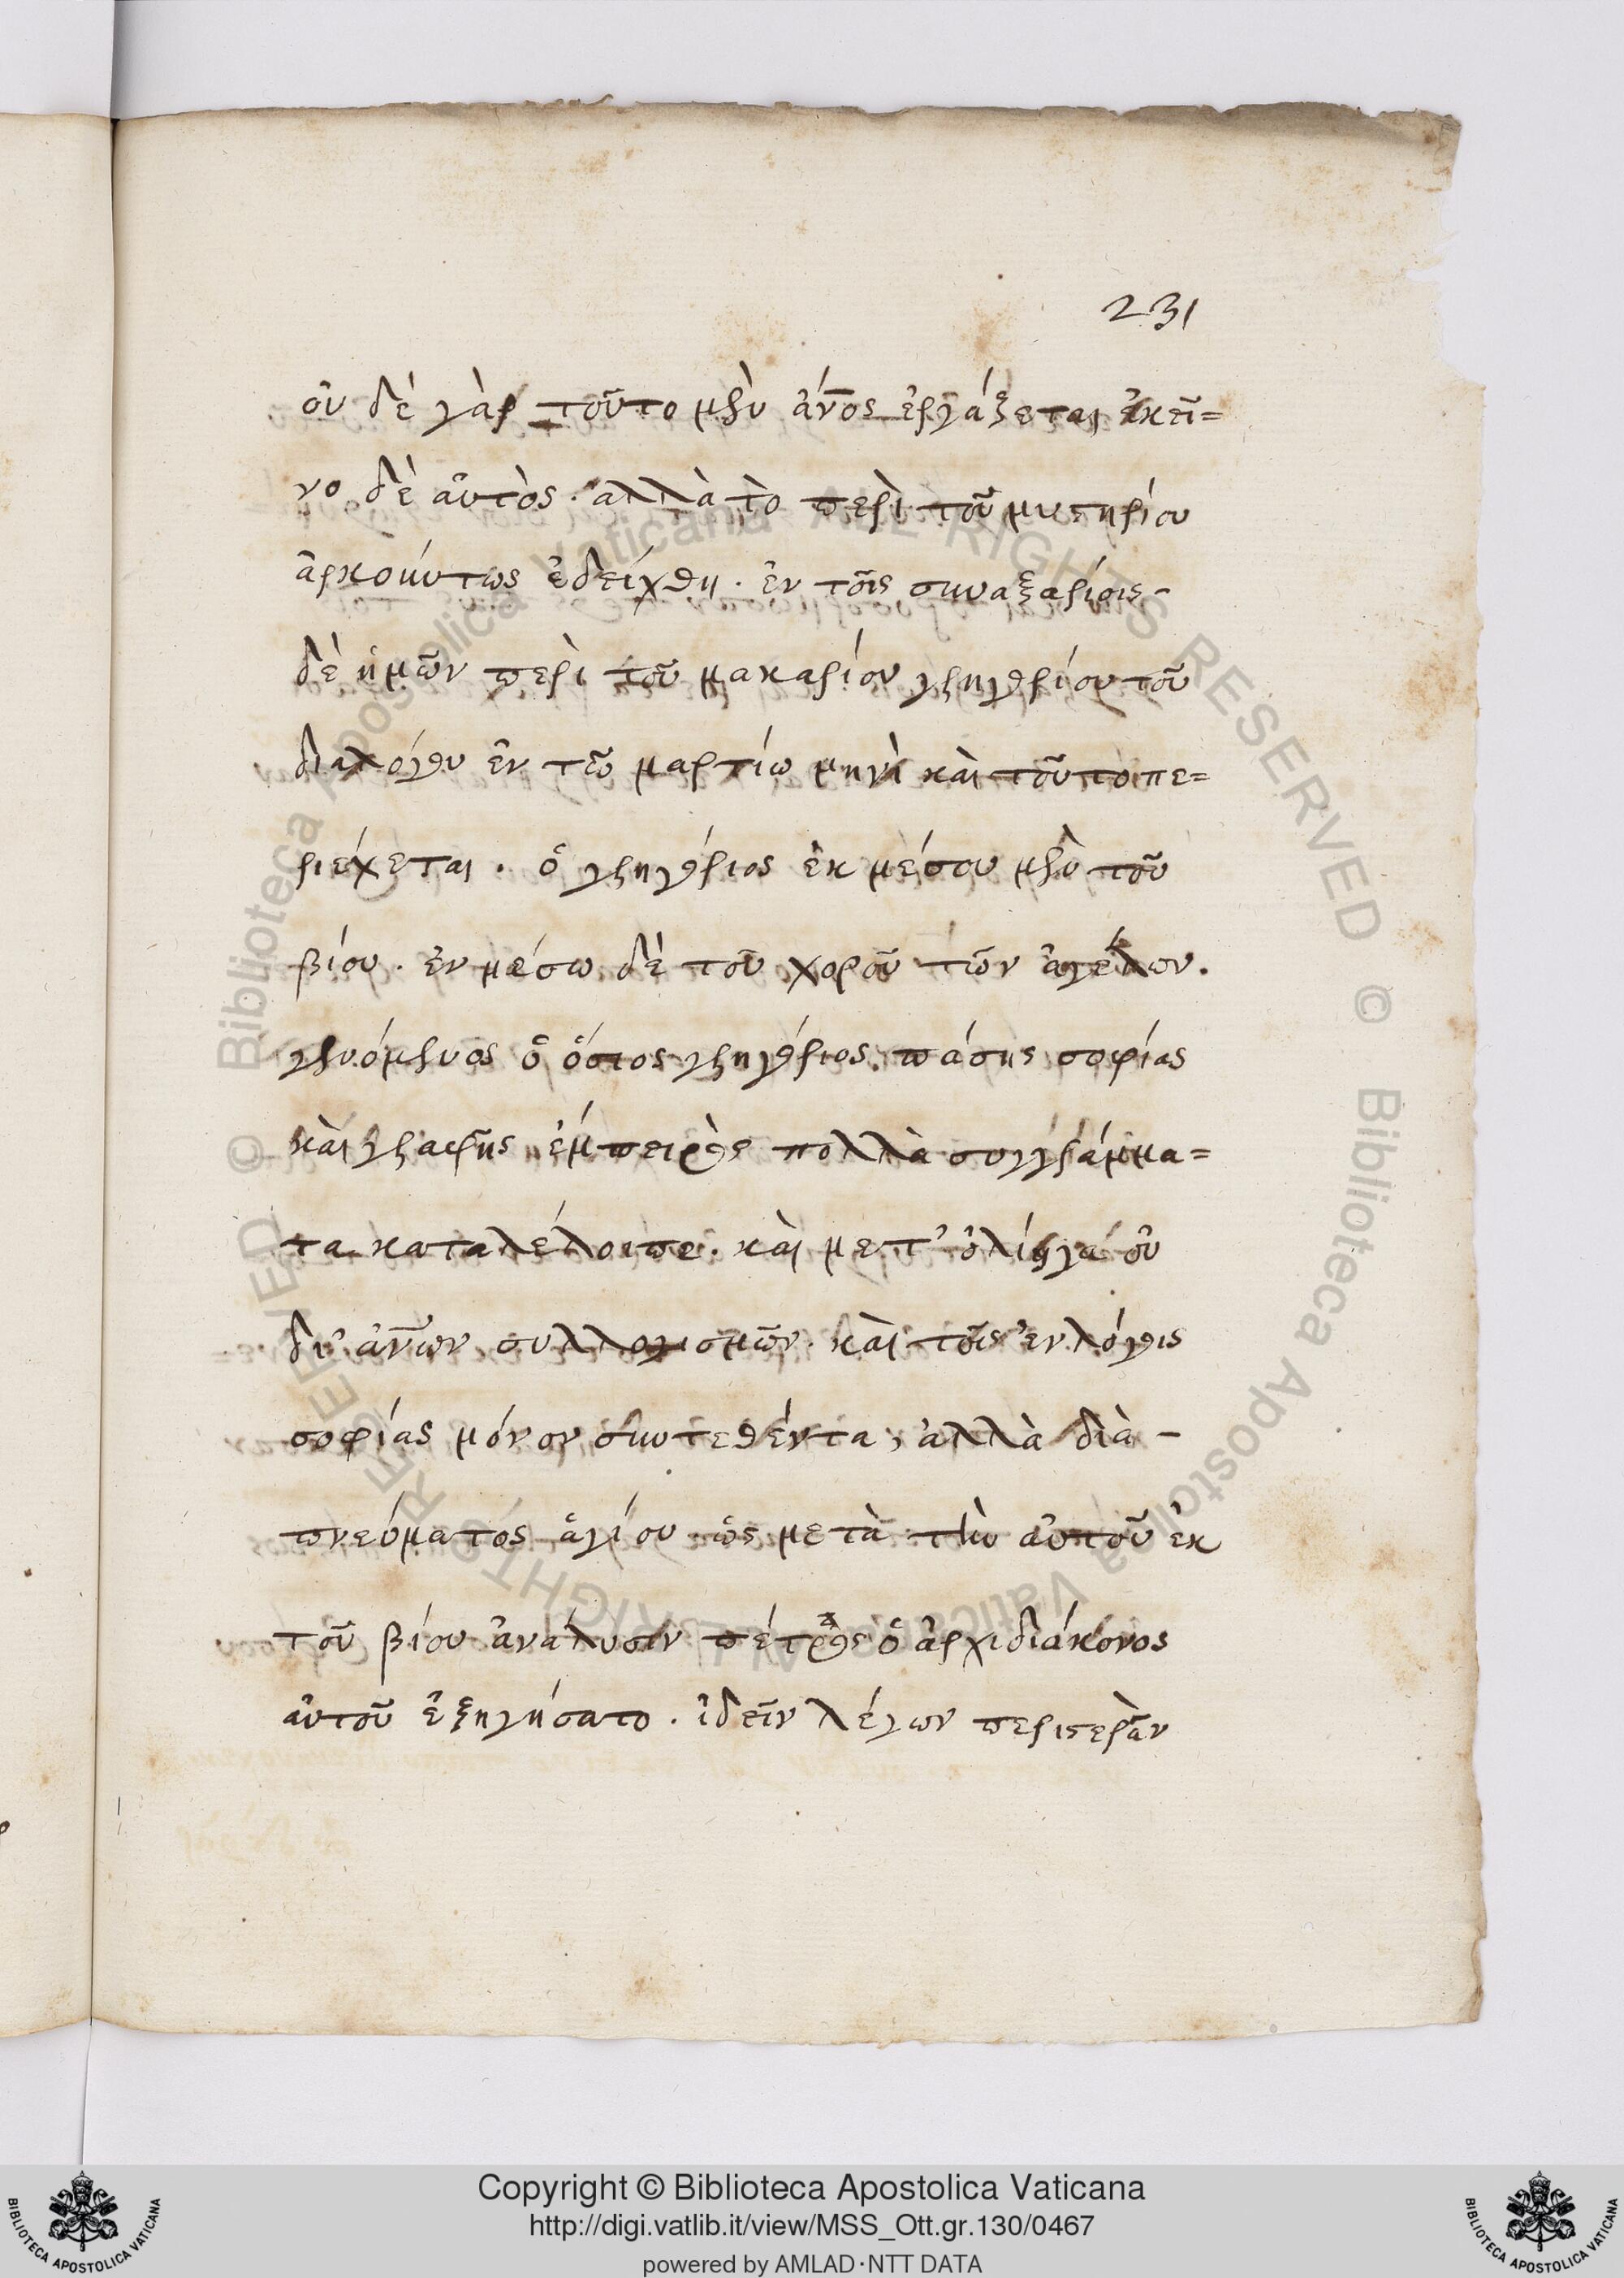 231
οὐ δὲ γὰρ τοῦτο μὲν ἄν̅ος ἐργάζεται ἐκεῖ=
νο δὲ αὐτὸς. ἀλλὰ τὸ περὶ τοῦ μυστηρίου
ἀρκούντως ἐδείχθη. ἐν τοῖς συναξαρίοις -
δὲ ἡμῶν περὶ τοῦ μακαρίου γρηγορίου τοῦ
διαλόγου ἐν τῶ μαρτίω μηνὶ καὶ τοῦτο πε=
ριέχεται. ὁ γρηγόριος ἐκ μέσου μὲν τοῦ
βίου. ἐν μέσω δὲ τοῦ χοροῦ τῶν ἀγέλων.
γενόμενος ὁ ὅσιος γρηγόριος. πάσης σοφίας
καὶ γραφῆς ἔμπειρος πολλὰ συγγράμμα=
τα καταλέλοιπε. καὶ μετ' ὀλίγα οὐ
δι' ἀν̅ων συλλογισμῶν. καὶ τοῖς ἐν λόγοις
σοφίας μόνον συντεθέντα, ἀλλὰ διὰ -
πνεύματος ἁγίου. ὡς μετὰ τὴν αὐτοῦ ἐκ
τοῦ βίου ἀνάλυσιν πέτρος ὁ ἀρχιδιάκονος
αὐτοῦ ἐξηγήσατο. ἰδεῖν λέγων περιστερὰν
Biblioteca Apostolica Vaticana ALL RIGHTS RESERVED © Biblioteca Apostolica Vaticana ALL RIGHTS RESERVED ©
Copyright © Biblioteca Apostolica Vaticana
http://digi.vatlib.it/view/MSS_Ott.gr.130/0467
powered by AMLAD·NTT DATA
BIBLIOTECA APOSTOLICA VATICANA
BIBLIOTECA APOSTOLICA VATICANA